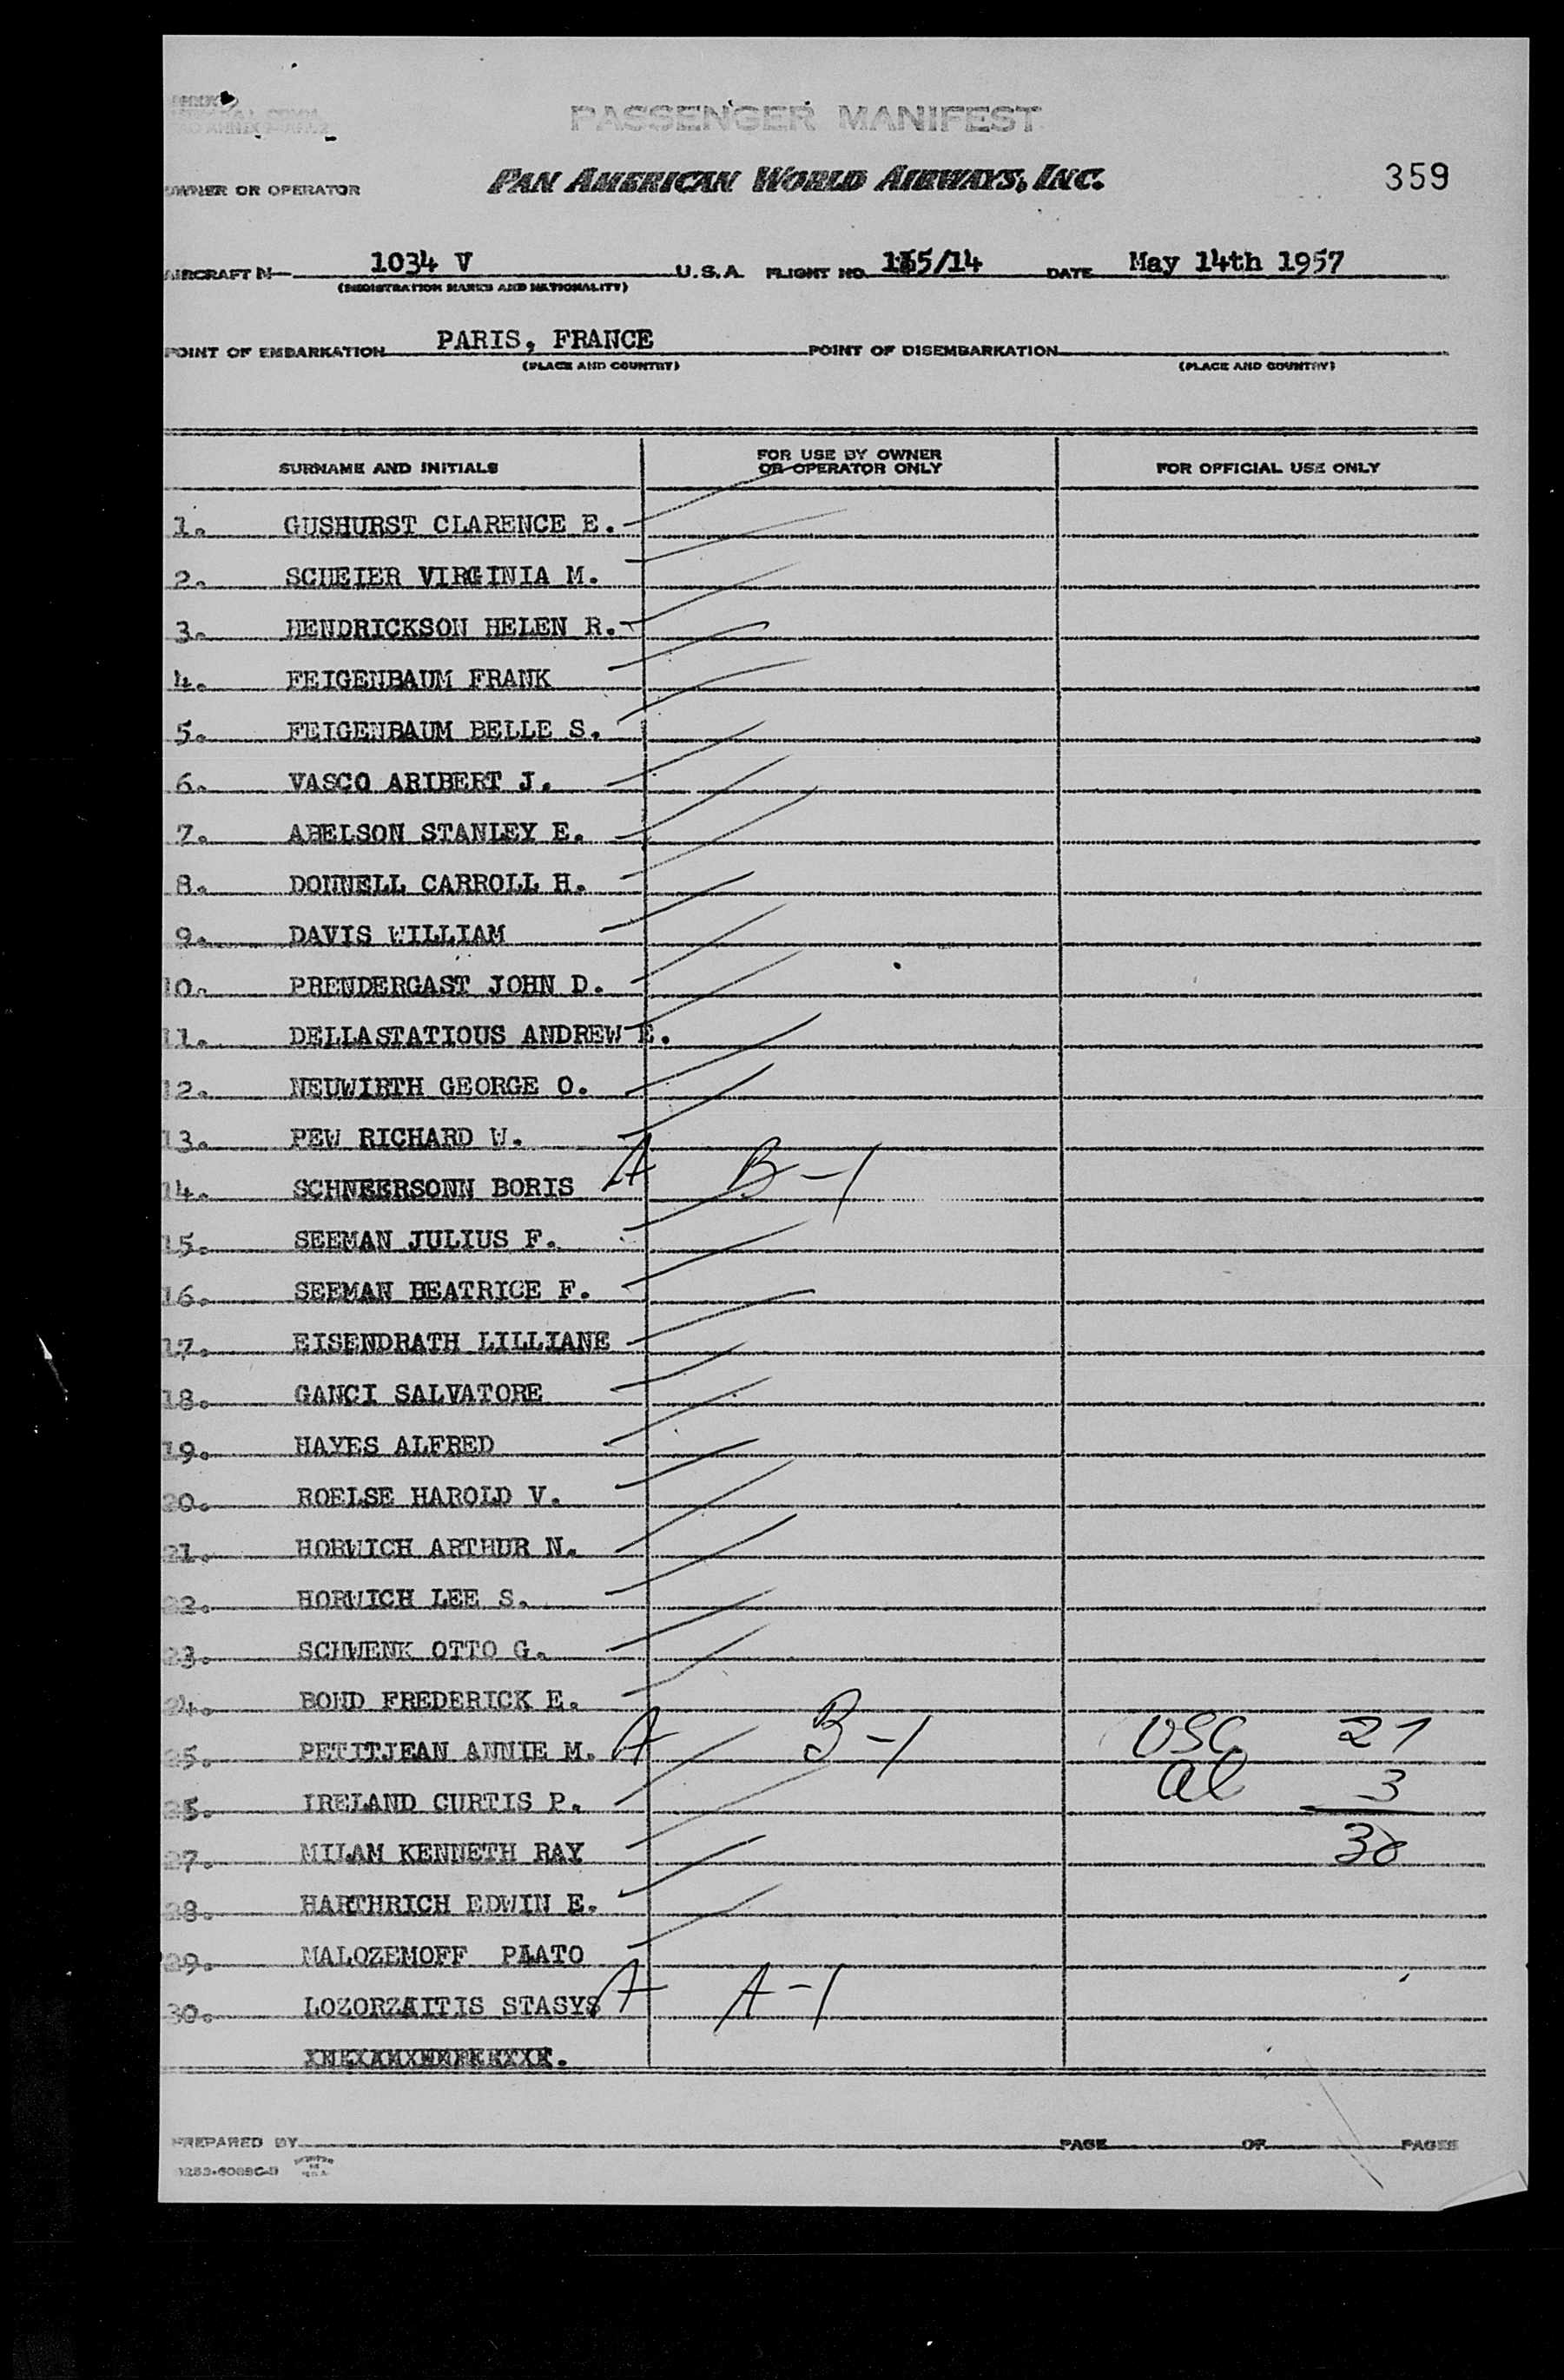 PASSENGER MANIFEST
OWNER OR OPERATOR PAN AMERICAN WORLD AIRWAYS, INC. 359
AIRCRAFT N 1034 V U.S.A. FLIGHT NO. 115/14 DATE May 14th 1957
(REGISTRATION MARKS AND NATIONALITY)
POINT OF EMBARKATION PARIS, FRANCE POINT OF DISEMBARKATION
(PLACE AND COUNTRY) (PLACE AND COUNTRY)
SURNAME AND INITIALS FOR USE BY OWNER OR OPERATOR ONLY FOR OFFICIAL USE ONLY
1. GUSHURST CLARENCE E.
2. SCHEIER VIRGINIA M.
3. HENDRICKSON HELEN R.
4. FEIGENBAUM FRANK
5. FEIGENBAUM BELLE S.
6. VASCO ARIBERT J.
7. ABELSON STANLEY E.
8. DONNELL CARROLL H.
9. DAVIS WILLIAM
10. PRENDERGAST JOHN D.
11. DELLASTATIOUS ANDREW E.
12. NEUWIRTH GEORGE O.
13. PEW RICHARD W.
14. SCHNEERSONN BORIS A B-1
15. SEEMAN JULIUS F.
16. SEEMAN BEATRICE F.
17. EISENDRATH LILLIANE
18. GANCI SALVATORE
19. HAYES ALFRED
20. ROELSE HAROLD V.
21. HORWICH ARTHUR N.
22. HORWICH LEE S.
23. SCHWENK OTTO G.
24. BOND FREDERICK E.
25. PETITJEAN ANNIE M. A B-1 USC 27
25. IRELAND CURTIS P. al 3
27. MILAM KENNETH RAY 30
28. HARTHRICH EDWIN E.
29. MALOZEMOFF PLATO
30. LOZORZAITIS STASYS A A-1
PREPARED BY PAGE OF PAGES